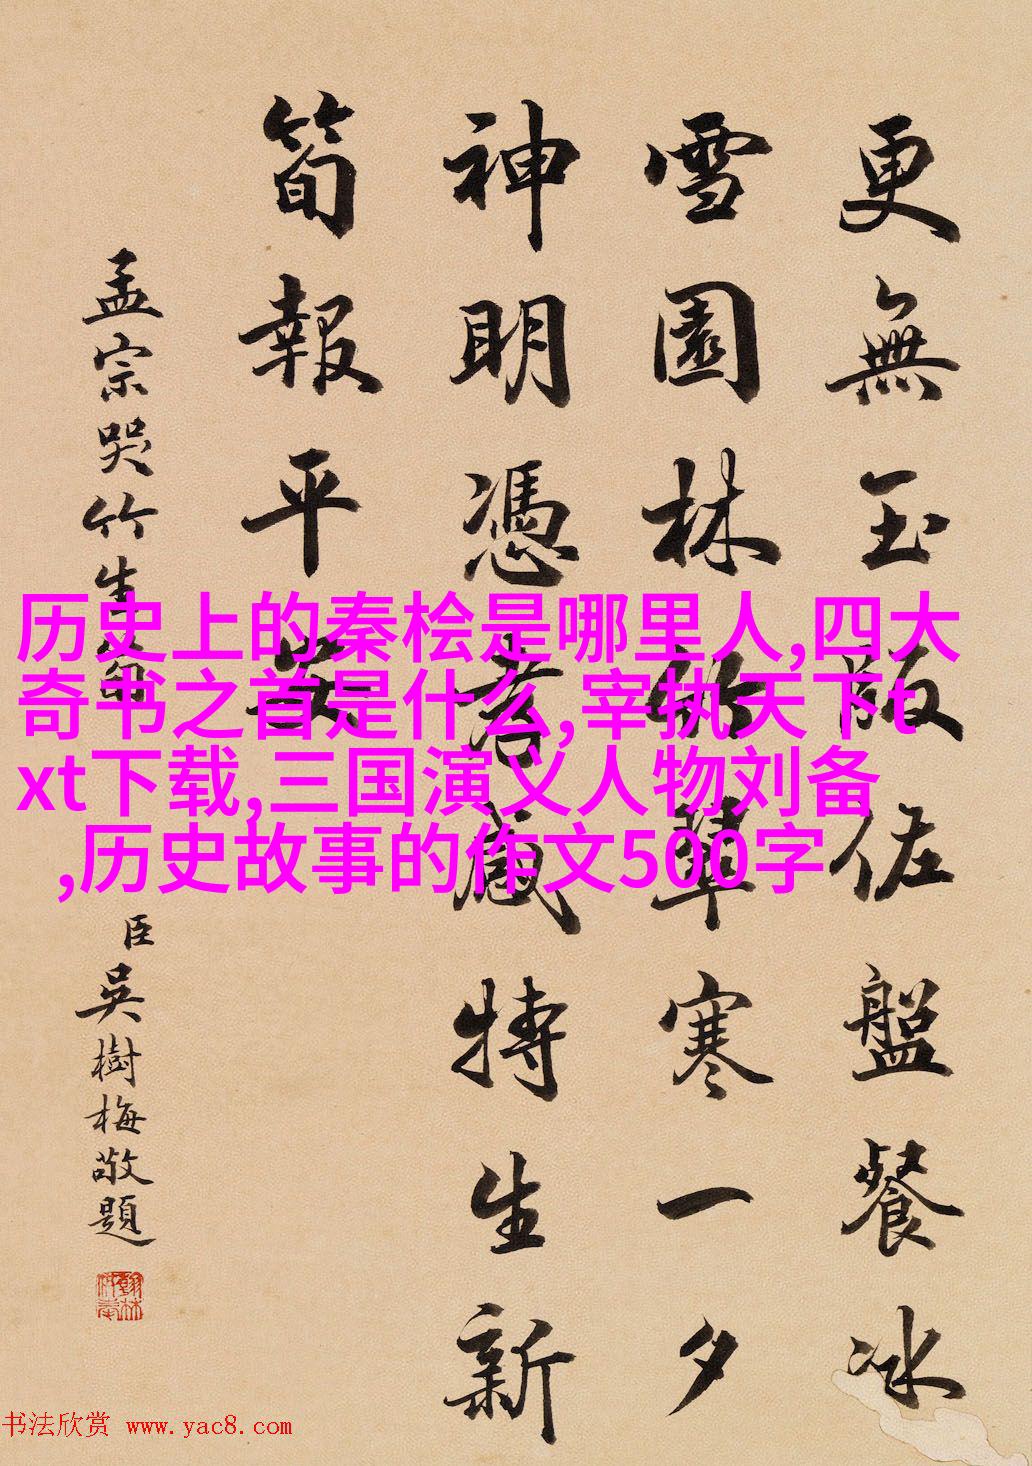 更無玉版佐盤餐冰
雪園林竹萆寒一夕
神明憑孝感特生新
筍報平安
孟宗哭竹生筍
臣吳樹梅敬題
历史上的秦桧是哪里人,四大
奇书之首是什么,宰执天下t
xt下载,三国演义人物刘备
,历史故事的作文500字
书法欣赏 www.yac8.com